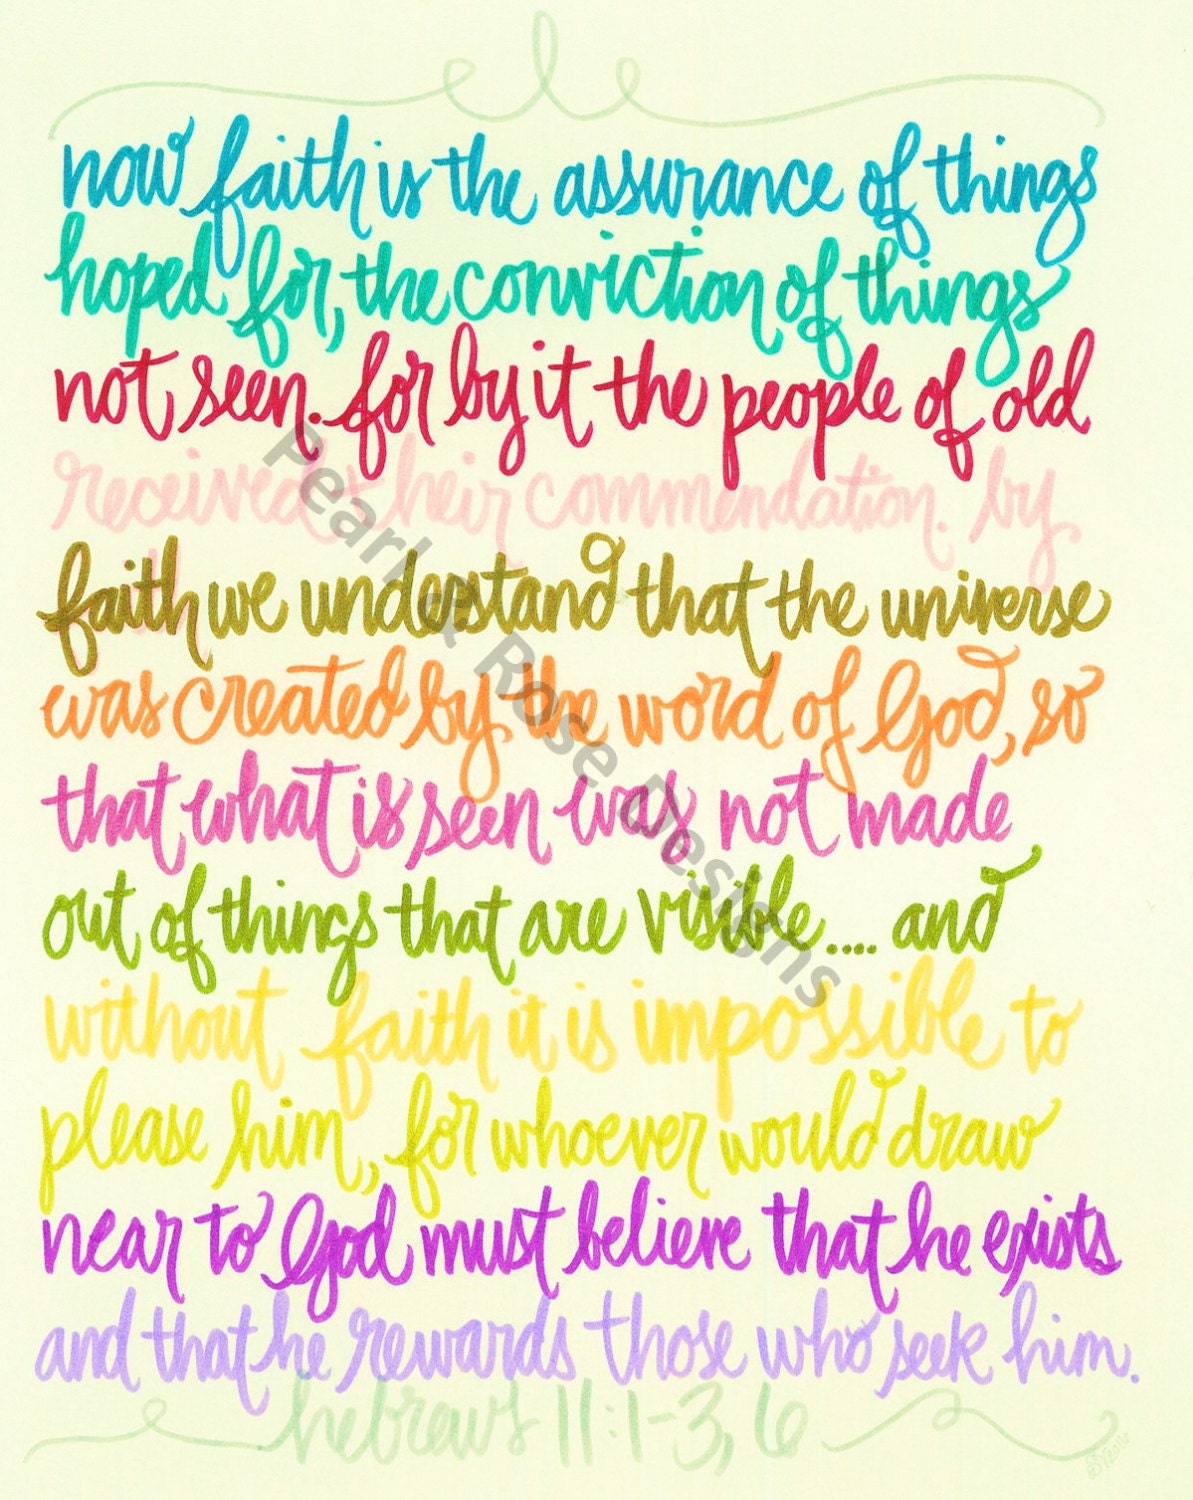 now faith is the assurance of things
hoped for, the conviction of things
not seen. for by it the people of old
received their commendation. by
faith we understand that the universe
was created by the word of God, so
that what is seen was not made
out of things that are visible.... and
without faith it is impossible to
please him, for whoever would draw
near to God must believe that he exists
and that he rewards those who seek him.
hebrews 11:1-3, 6
Pearl & Rose Designs